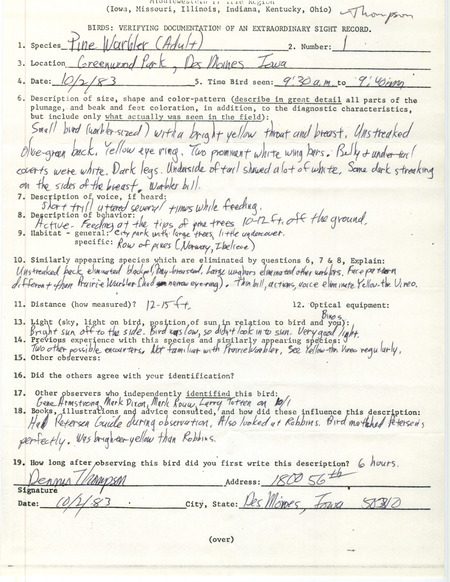 (Iowa, Missouri, Illinois, Indiana, Kentucky, Ohio) Thompson
BIRDS: VERIFYING DOCUMENTATION OF AN EXTRAORDINARY SIGHT RECORD.
1. Species Pine Warbler (Adult) 2. Number: 1
3. Location Greenwood Park, Des Moines Iowa
4. Date: 10/2/83 5. Time Bird seen: 9:30 a.m. to 9:40 a.m.
6. Description of size, shape and color-pattern (describe in great detail all parts of the
plumage, and beak and feet coloration, in addition, to the diagnostic characteristics,
but include only what actually was seen in the field):
Small bird (warbler-sized) with a bright yellow throat and breast. Unstreaked
olive-green back. Yellow eye ring. Two prominant white wing bars. Belly & under-tail
coverts were white. Dark legs. Underside of tail showed a lot of white. Some dark streaking
on the sides of the breast. Warbler bill.
7. Description of voice, if heard:
Short trill uttered several times while feeding.
8. Description of behavior:
Active. Feeding at the tips of pine trees 10-12 ft. off the ground.
9. Habitat - general: City park with large trees, little undercover.
specific: Row of pines (Norway,
10. Similarly appearing species which are eliminated by questions 6, 7 & 8, Explain:
Unstreaked back eliminated Blackpoll, Bay-breasted. Large wingbars eliminated other warblers. Face pattern
different than Prairie Warbler (had no eye ring). Thin bill, actions, voice eliminate Yellow-thr. Vireo.
11. Distance (how measured)? 12-15 ft. 12. Optical equipment:
Binos.
13. Light (sky, light on bird, position of sun in relation to bird and you):
Bright sun off to the side. Bird was low, so didn't look into sun. Very good light.
14. Previous experience with this species and similarly appearing species:
Two other possible encounters. Not familiar with Prairie Warbler. See Yellow-thr. Vireo regularly.
15. Other observers:
16. Did the others agree with your identification?
17. Other observers who independently identified this bird:
Gene Armstrong, Mark Dixon, Mark Rouw, Larry on 10/1
18. Books, illustrations and advice consulted, and how did these influence this description:
Had Peterson Guide during observation. Also looked at Robbins. Bird matched Peterson's
perfectly. Was brighter yellow than Robbins.
19. How long after observing this bird did you first write this description? 6 hours.
Dennis Thompson Address: 1800 56th
Signature
Date: 10/2/83 City, State: Des Moines, Iowa 50310
(over)